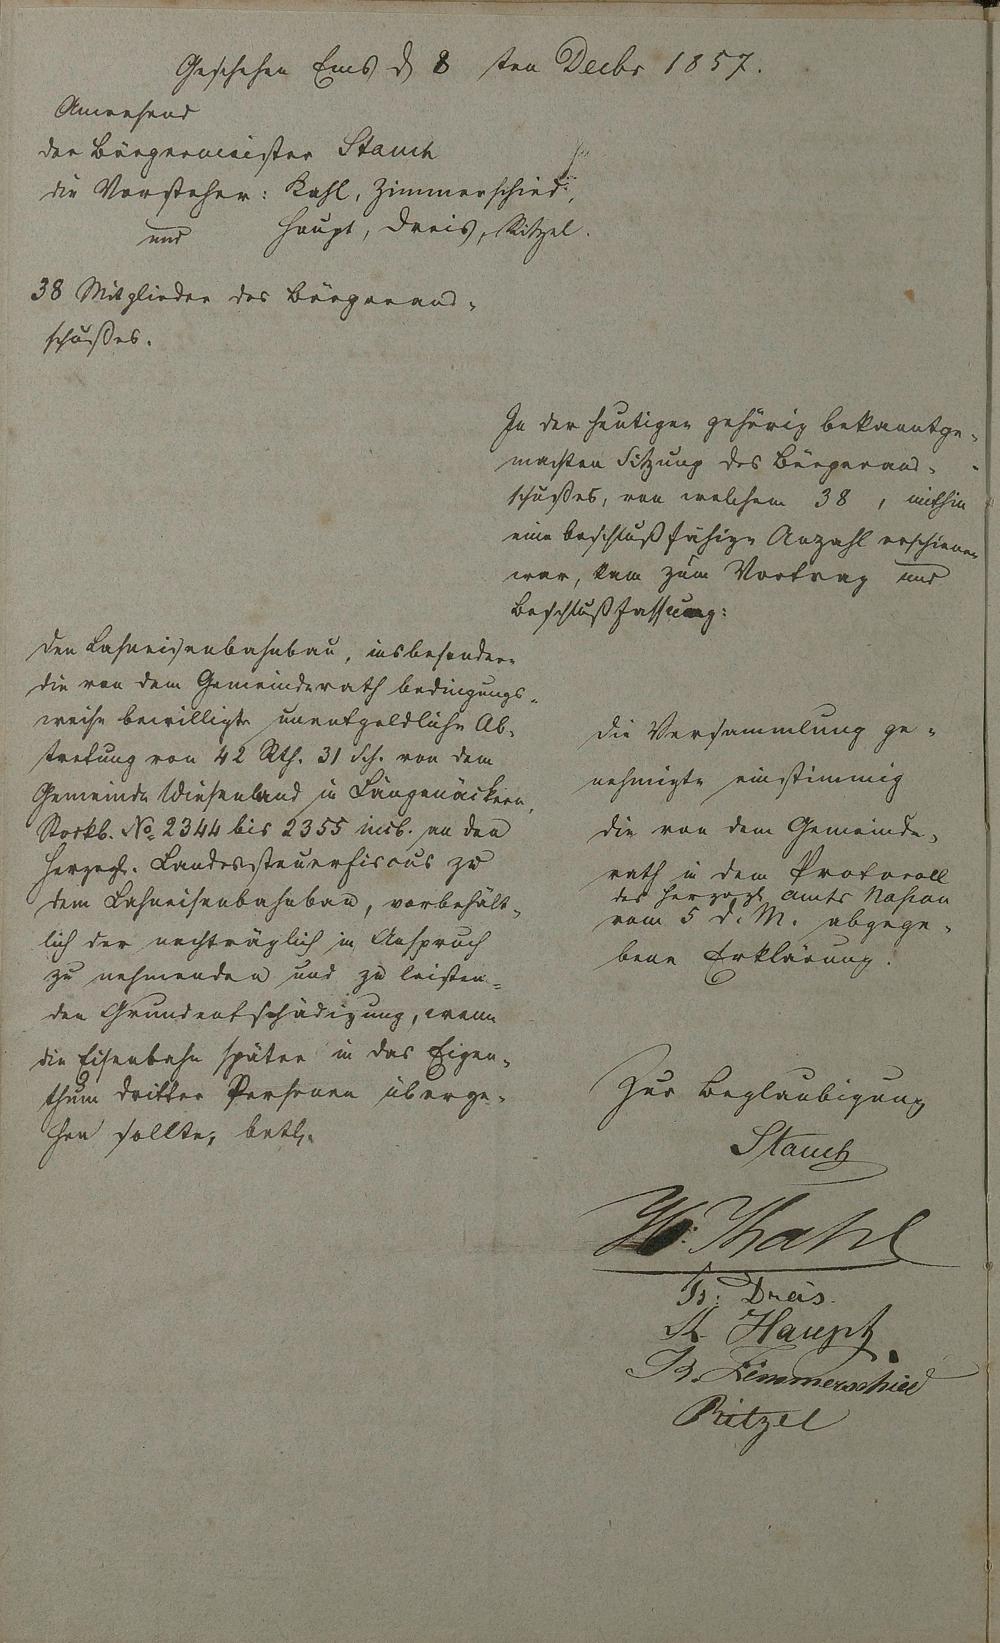 Geschehen Ems d 8 ten Decbr 1857.
Anwesend
der Bürgermeister Stauch
die Vorsteher: Kahl, Zimmerschied,
und Haupt, Dreis, Ritzel.
38 Mitglieder des Bürgeraus-
schußes.
In der heutigen gehörig bekanntge-
machten Sitzung des Bürgeraus-
schußes, von welchem 38, mithin
eine beschlußfähige Anzahl erschienen
war, kam zum Vortrag und
Beschlußfassung:
den Lahneisenbahnbau, insbesondere
die von dem Gemeinderath bedingungs-
weise bewilligte unentgeldliche Ab-
tretung von 42 Rth. 31 Sch. von dem
Gemeinde Wiesenland in Längenäckern,
Stockb. No 2344 bis 2355 incl. an den
Herzogl. Landessteuerfiscus zu
dem Lahneisenbahnbau, vorbehält-
lich der nachträglich in Anspruch
zu nehmenden und zu leisten-
den Grundentschädigung, wenn
die Eisenbahn später in das Eigen-
thum dritter Personen überge-
hen sollte, betr.
die Versammlung ge-
nehmigte einstimmig
die von dem Gemeinde-
rath in dem Protocoll
des Herzogl. Amts Nassau
vom 5 d. M. abgege-
bene Erklärung.
Zur Beglaubigung
Stauch
Kahl
Dreis.
Haupt
Zimmerschied
Ritzel